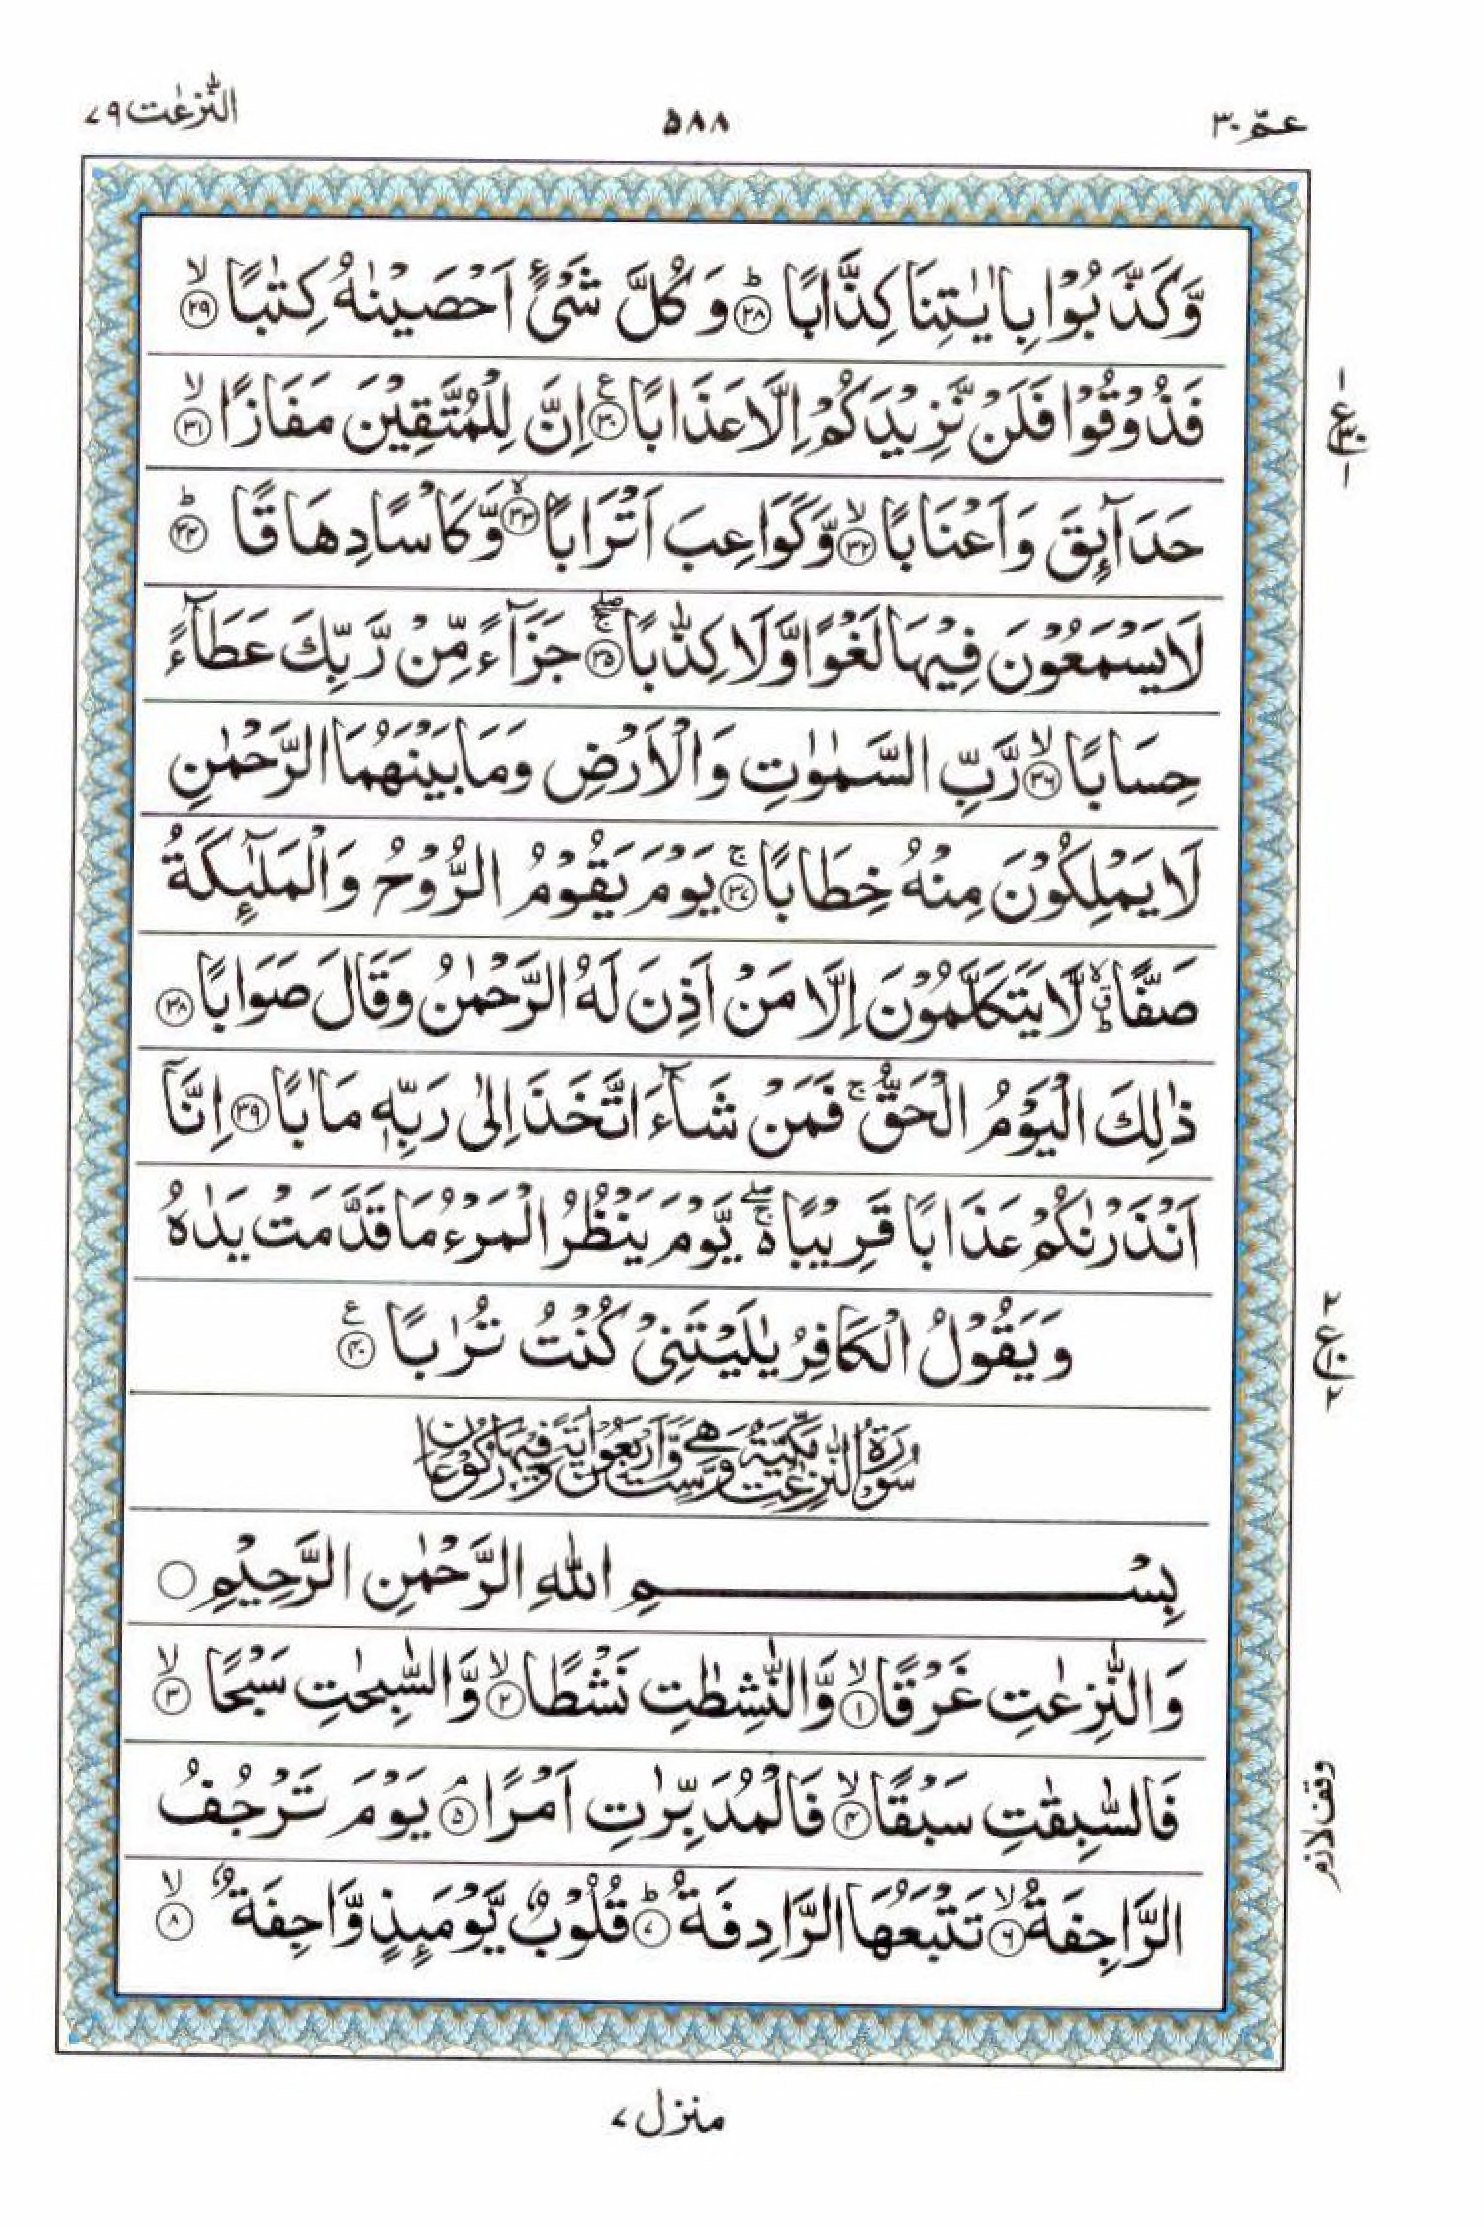 عمّ ٣٠
٥٨٨
النّٰزعٰت ٧٩
وَّكَذَّبُوْا بِاٰيٰتِنَا كِذَّابًا ؕ‏﴿۲۸﴾ وَكُلَّ شَىْءٍ اَحْصَيْنٰهُ كِتٰبًا ۙ‏﴿۲۹﴾
فَذُوْقُوْا فَلَنْ نَّزِيْدَكُمْ اِلَّا عَذَابًا ﴿۳۰﴾ؑ اِنَّ لِلْمُتَّقِيْنَ مَفَازًا ۙ‏﴿۳۱﴾
حَدَآٮِٕقَ وَاَعْنَابًا ۙ‏﴿۳۲﴾ وَّكَوَاعِبَ اَتْرَابًا ۙ‏﴿۳۳﴾ وَّكَاْسًا دِهَاقًا ؕ‏﴿۳۴﴾
لَا يَسْمَعُوْنَ فِيْهَا لَغْوًا وَّلَا كِذّٰبًا ۚۖ‏﴿۳۵﴾ جَزَآءً مِّنْ رَّبِّكَ عَطَآءً
حِسَابًا ۙ‏﴿۳۶﴾ رَّبِّ السَّمٰوٰتِ وَالْاَرْضِ وَمَا بَيْنَهُمَا الرَّحْمٰنِ
لَا يَمْلِكُوْنَ مِنْهُ خِطَابًا ۚ‏﴿۳۷﴾ يَوْمَ يَقُوْمُ الرُّوْحُ وَالْمَلٰٓٮِٕكَةُ
صَفًّا ؕۙ لَّا يَتَكَلَّمُوْنَ اِلَّا مَنْ اَذِنَ لَهُ الرَّحْمٰنُ وَقَالَ صَوَابًا ﴿۳۸﴾
ذٰلِكَ الْيَوْمُ الْحَقُّ ۚ فَمَنْ شَآءَ اتَّخَذَ اِلٰى رَبِّهٖ مَاٰبًا ﴿۳۹﴾ اِنَّاۤ
اَنْذَرْنٰكُمْ عَذَابًا قَرِيْبًا ۬ۚۖ يَّوْمَ يَنْظُرُ الْمَرْءُ مَا قَدَّمَتْ يَدٰهُ
وَيَقُوْلُ الْكَافِرُ يٰلَيْتَنِىْ كُنْتُ تُرٰبًا ﴿۴۰﴾ؑ
سُوْرَةُ النّٰزِعٰتِ مَكِّيَّةٌ وَّهِىَ سِتٌّ وَّاَرْبَعُوْنَ اٰيَةً وَّفِيْهَا رُكُوْعَانِ
بِسْمِ اللّٰهِ الرَّحْمٰنِ الرَّحِيْمِ ○
وَالنّٰزِعٰتِ غَرْقًا ۙ‏﴿۱﴾ وَّالنّٰشِطٰتِ نَشْطًا ۙ‏﴿۲﴾ وَّالسّٰبِحٰتِ سَبْحًا ۙ‏﴿۳﴾
فَالسّٰبِقٰتِ سَبْقًا ۙ‏﴿۴﴾ فَالْمُدَبِّرٰتِ اَمْرًا ۘ‏﴿۵﴾ يَوْمَ تَرْجُفُ
الرَّاجِفَةُ ۙ‏﴿۶﴾ تَتْبَعُهَا الرَّادِفَةُ ؕ‏﴿۷﴾ قُلُوْبٌ يَّوْمَٮِٕذٍ وَّاجِفَةٌ ۙ‏﴿۸﴾
١ ع ٣٠ ١
٢ ع ١٠ ٢
وقف لازم
منزل ٧